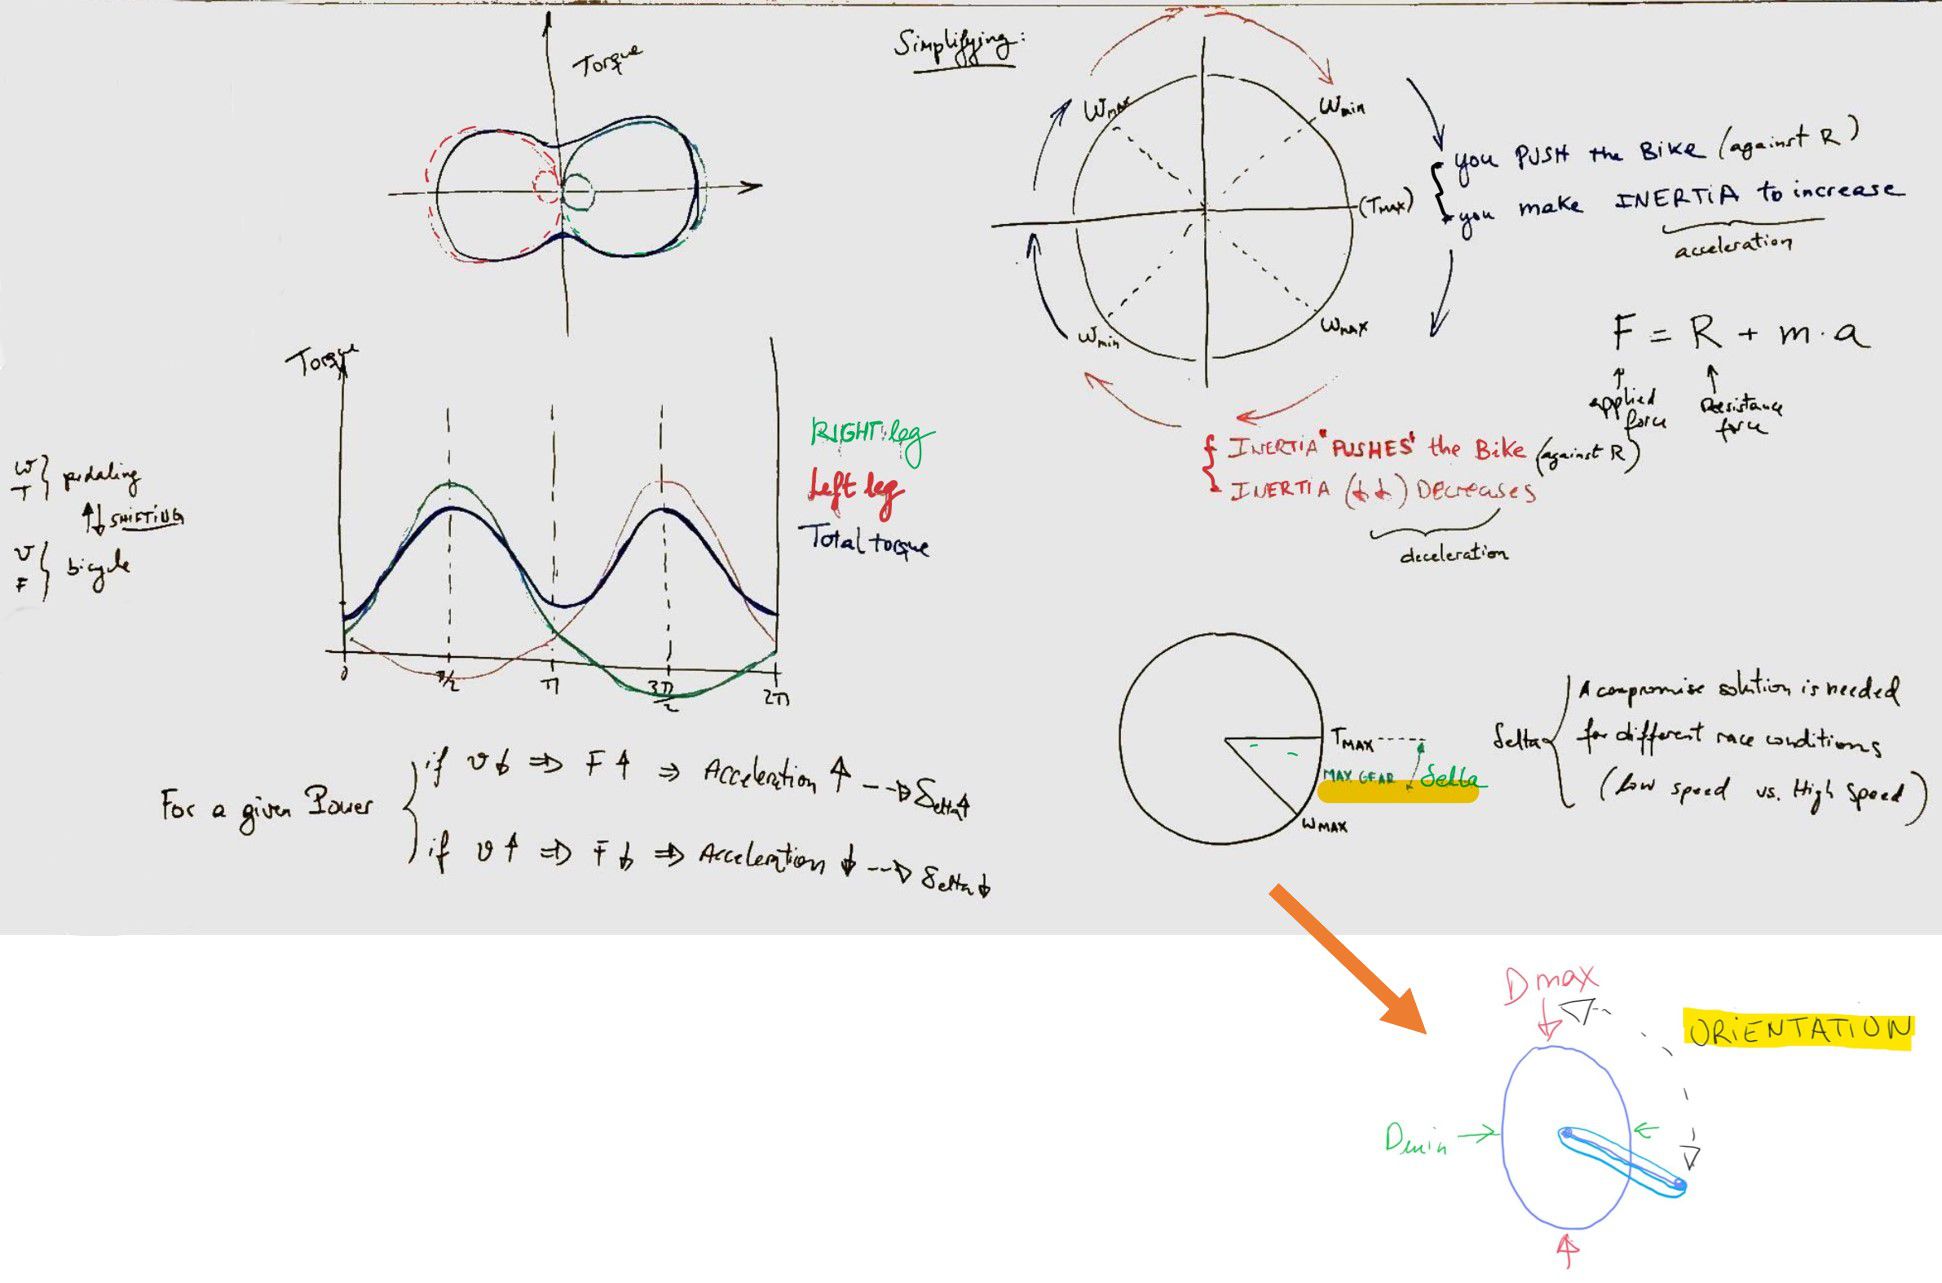 Torque
Simplifying:
Wmax
Wmin
(Tmax)
Wmin
Wmax
you PUSH the Bike (against R)
you make INERTIA to increase
acceleration
F = R + m·a
applied force
Resistance force
INERTIA "PUSHES" the Bike (against R)
INERTIA (↓↓) Decreases
deceleration
Torque
0
π/2
π
3π/2
2π
RIGHT leg
Left leg
Total torque
W
T
pedaling
↑↓ SHIFTING
v
F
bicycle
For a given Power
if v↓ ⇒ F↑ ⇒ Acceleration ↑ --> Delta↑
if v↑ ⇒ F↓ ⇒ Acceleration ↓ --> Delta↓
TMAX
MAX GEAR
Delta
WMAX
Delta
A compromise solution is needed
for different race conditions
(low speed vs. High Speed)
Dmax
ORiENTATiON
Dmin